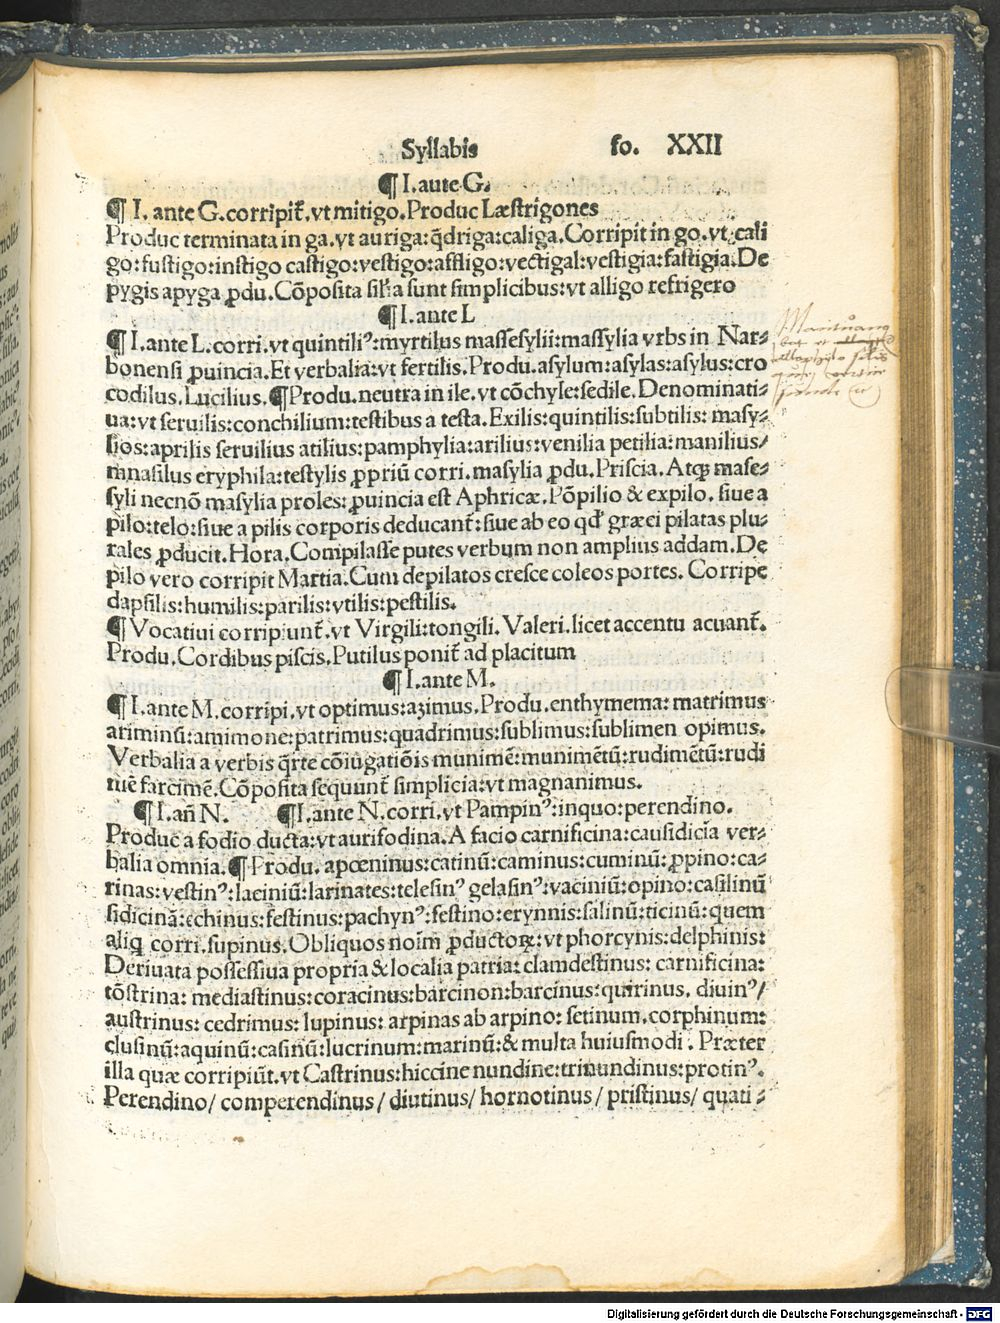 Syllabis fo. XXII
¶ I. aute G.
¶ I. ante G. corripit̃. vt mitigo. Produc Læstrigones
Produc terminata in ga. vt auriga: q̃driga: caliga. Corripit in go. vt. cali
go: fustigo: instigo castigo: vestigo: affligo: vectigal: vestigia: fastigia. De
pygis apyga ꝓdu. Cõposita sil̃ia sunt simplicibus: vt alligo refrigero
¶ I. ante L
¶ I. ante L. corri. vt quintiliꝰ: myrtilus massesylii: massylia vrbs in Nar⸗
bonensi ꝓuincia. Et verbalia: vt fertilis. Produ. asylum: asylas: asylus: cro
codilus. Lucilius. ¶ Produ. neutra in ile. vt cõchyle: sedile. Denominati⸗
ua: vt seruilis: conchilium: testibus a testa. Exilis: quintilis: subtilis: masy⸗
lios: aprilis seruilius atilius: pamphylia: arilius: venilia petilia: manilius⸗
mnasilus eryphila: testylis ꝓpriũ corri. masylia ꝓdu. Priscia. Atqꝫ mase⸗
syli necnõ masylia proles: ꝓuincia est Aphricæ. Põpilio & expilo. siue a
pilo: telo: siue a pilis corporis deducant̃: siue ab eo qđ græci pilatas plu⸗
rales ꝓducit. Hora. Compilasse putes verbum non amplius addam. De
pilo vero corripit Martia. Cum depilatos cresce coleos portes. Corripe
dapsilis: humilis: parilis: vtilis: pestilis.
¶ Vocatiui corripiunt̃. vt Virgili: tongili. Valeri. licet accentu acuant̃.
Produ. Cordibus piscis. Putilus ponit̃ ad placitum
¶ I. ante M.
¶ I. ante M. corripi. vt optimus: azimus. Produ. enthymema: matrimus
ariminũ: amimone: patrimus: quadrimus: sublimus: sublimen opimus.
Verbalia a verbis q̃rte cõiugatiõis munimẽ: munimẽtũ: rudimẽtũ: rudi
mẽ farcimẽ. Cõposita sequunt̃ simplicia: vt magnanimus.
¶ I. añ N. ¶ I. ante N. corri. vt Pampinꝰ: inquo: perendino.
Produc a fodio ducta: vt aurifodina. A facio carnificina: causidicia ver⸗
balia omnia. ¶ Produ. apœninus: catinũ: caminus: cuminũ: ꝓpino: ca⸗
rinas: vestinꝰ: laciniũ: larinates: telesinꝰ gelasinꝰ: vaciniũ: opino: casilinũ
sidicinã: echinus: festinus: pachynꝰ: festino: erynnis: salinũ: ticinũ: quem
aliq̃ corri. supinus. Obliquos noĩm ꝓductoꝝ: vt phorcynis: delphinis:
Deriuata possessiua propria & localia patria: clamdestinus: carnificina:
tõstrina: mediastinus: coracinus: barcinon: barcinus: quirinus. diuinꝰ/
austrinus: cedrimus: lupinus: arpinas ab arpino: setinum. corphinum:
clusinũ: aquinũ: casinũ: lucrinum: marinũ: & multa huiusmodi. Præter
illa quæ corripiũt. vt Castrinus: hiccine nundine: trinundinus: protinꝰ.
Perendino/ comperendinus/ diutinus/ hornotinus/ pristinus/ quati⸗
Digitalisierung gefördert durch die Deutsche Forschungsgemeinschaft - DFG